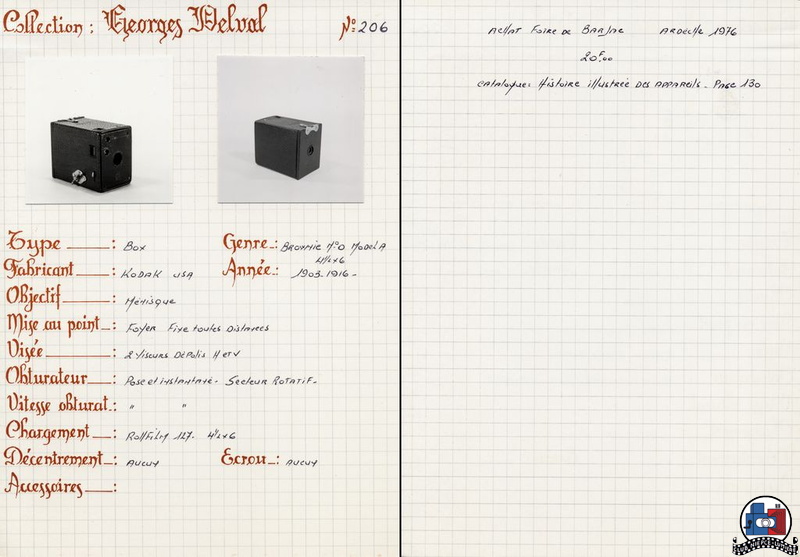 Collection : Georges Delval
N° 206
Type : Box
Genre : Brownie N°0 Model A
4½x6
Fabricant : KODAK USA
Année : 1903-1916 -
Objectif : Ménisque
Mise au point : Foyer Fixe toutes Distances
Visée : 2 Viseurs Dépolis H et V
Obturateur : Pose et instantané - Secteur Rotatif -
Vitesse obturat. : " "
Chargement : RollFilm 127. 4½x6
Décentrement : Aucun
Ecrou : Aucun
Accessoires :
Achat Foire de Barjac Ardèche 1976
20F00
Catalogues Histoire illustrée des appareils. Page 130